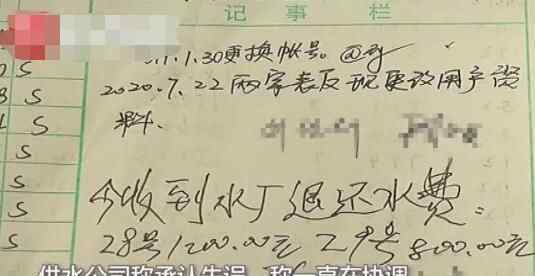 记事栏
1.30更换帐号。
2020.7.22两家表反现更改用户资
料.
今收到水厂退还水费:
28号1200.00元 29号800.00元
供水公司称承认失误，称一直在协调
S
S
S
S
S
S
S